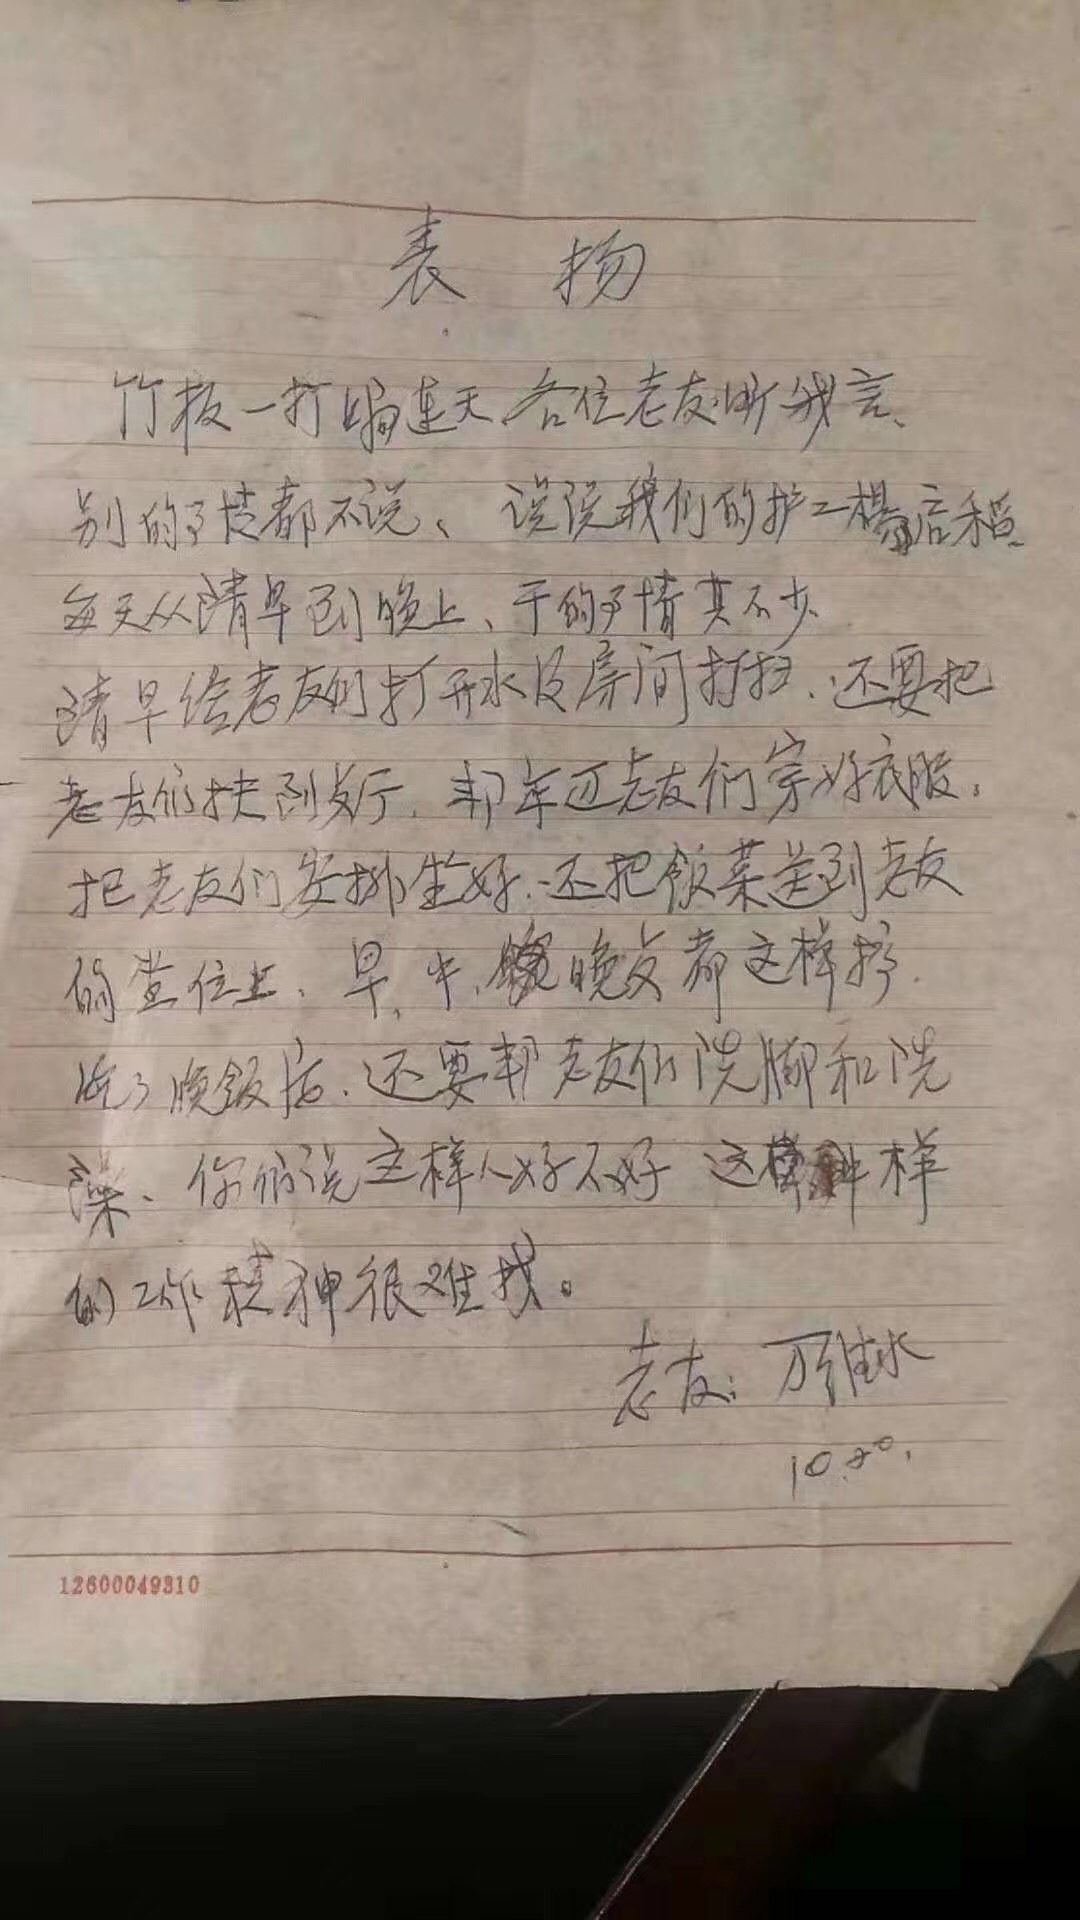 表 扬
竹板一打响连天、各位老友听我言、
别的事情都不说、说说我们的护工杨后稻、
每天从清早到晚上、干的事情真不少
清早给老友们打开水及房间打扫、还要把
老友们扶到前厅、帮年迈老友们穿好衣服、
把老友们安排坐好、还把饭菜送到老友
的坐位上、早、中、晚点都这样
吃了晚饭后、还要帮老友们洗脚和洗
澡、你们说这样人好不好 这样
的工作精神很难找。
老友：万维水
10.20.
12600049310